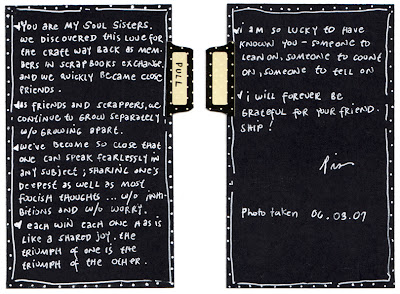 You are my soul sisters.
we discovered this love for
the craft way back as mem-
bers in scrapbooks exchange,
and we quickly became close
friends.
As friends and scrappers, we
continue to grow separately
w/o growing apart.
we've become so close that
one can speak fearlessly in
any subject; sharing one's
deepest as well as most
foolish thoughts ... w/o inhi-
bitions and w/o worry.
each win each one has is
like a shared joy. the
triumph of one is the
triumph of the other.
PULL
i am so lucky to have
known you - someone to
lean on, someone to count
on, someone to tell on
i will forever be
grateful for your friend.
ship!
Photo taken 06.03.07